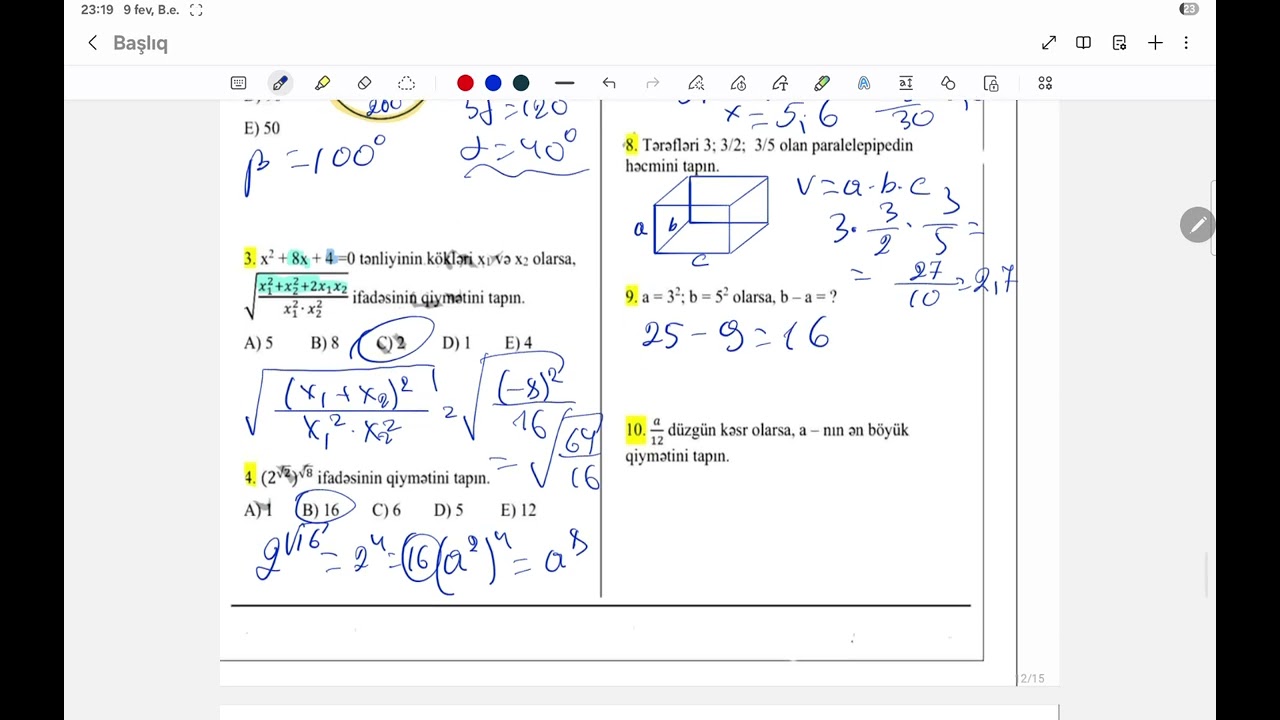 23:19 9 fev, B.e.
23
Başlıq
200
E) 50
β = 100°
3α = 120
α = 40°
3. x² + 8x + 4 =0 tənliyinin kökləri x₁ və x₂ olarsa,
√((x₁²+x₂²+2x₁x₂)/(x₁² · x₂²)) ifadəsinin qiymətini tapın.
A) 5 B) 8 C) 2 D) 1 E) 4
√((x₁ + x₂)²/(x₁² · x₂²)) = √((-8)²/16)
= √(64/16)
4. (2^√2)^√8 ifadəsinin qiymətini tapın.
A) 1 B) 16 C) 6 D) 5 E) 12
2^√16 = 2⁴ = 16 (a²)⁴ = a⁸
x = 5,6
30
8. Tərəfləri 3; 3/2; 3/5 olan paralelepipedin
həcmini tapın.
a b c
V = a · b · c
3 · 3/2 · 3/5 =
= 27/10 = 2,7
9. a = 3²; b = 5² olarsa, b – a = ?
25 - 9 = 16
10. a/12 düzgün kəsr olarsa, a – nın ən böyük
qiymətini tapın.
12/15